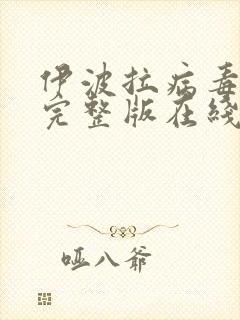 伊波拉病毒
完整版在綫
哑八爺